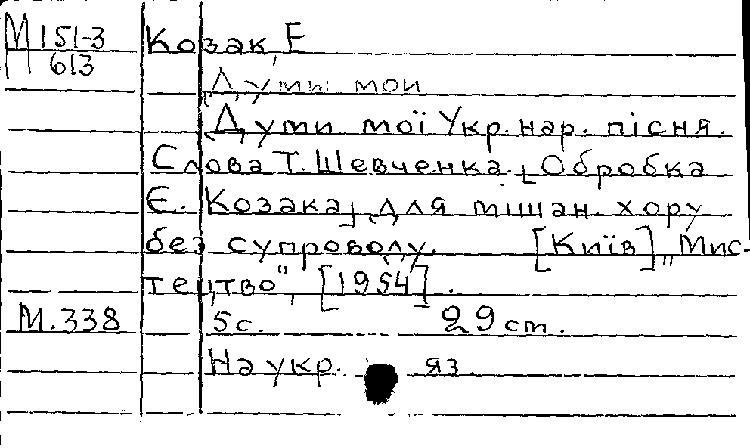 М 151-3
613
Козак, Е
Думи мои
Думи мої Укр. нар. пісня.
Слова Т. Шевченка. [Обробка
Є. Козака], для мішан. хору
без супроводу. [Київ] „Мис-
тецтво", [1954].
М.338 5 с. 29 cm.
На укр. яз